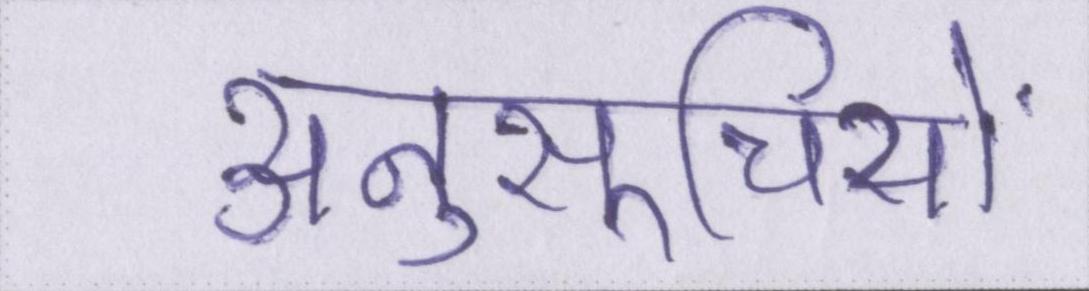 अनुसूचियों